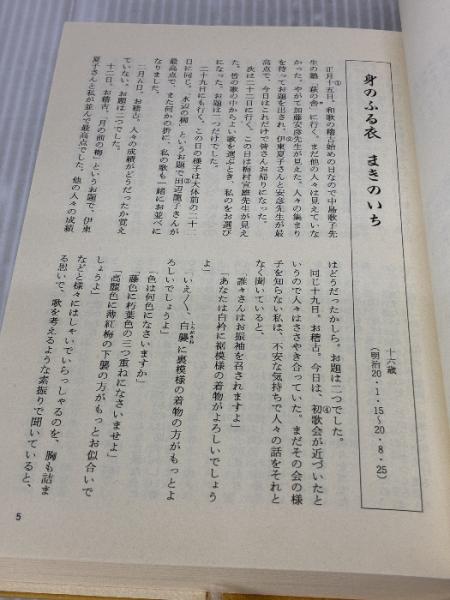 身のふる衣　まきのいち
十六歳
（明治20・1・15〜20・8・25）
正月①十五日、和歌の稽古始めの日なので中島歌子先
生の塾「萩の舎」に行く。まだ他の人々は見えていな
かった。やがて加藤安彦先生が見えた。人々の集まり
を待ってお題を出され、伊東夏子②さんと安彦先生が最
高点で、今日はこれだけで皆さんお帰りになった。
次は二十二日に行く。この日は梅村宣雄先生が見え
た。皆の歌の中からよい歌を選ぶとき、私のをお選び
になった。お題は二つだけでした。
二十九日にも行く。この日の様子は大体前の二十二
日に同じ。「水辺の柳」というお題で田辺龍子③さんが
最高点で、また何かの折に、私の歌も一緒にお並べに
なりました。
二月五日、お稽古。人々の成績がどうだったか覚え
ていない。お題は二つでした。
十二日、お稽古。「月の前の梅」というお題で、伊東
夏子さんと私が並んで最高点でした。他の人々の成績
はどうだったかしら。お題は二つでした。
同じ十九日、お稽古。今日は、初歌会④が近づいたと
いうので人々はささやき合っていた。まだその会の様
子を知らない私は、不安な気持ちで人々の話をそれと
なく聞いていると、
「誰々さんはお振袖を召されますよ」
「あなたは白衿に裾模様の着物がよろしいでしょう
よ」
「いえ〳〵、白襲に裏模様の着物の方がもっとよ
ろしいでしょうよ」
「色は何色になさいますか」
「藤色に朽葉色の三つ重ねになさいませよ」
「高麗色に薄紅梅の下襲の方がもっとお似合いで
しょうよ」
などと様々にはしゃいでいらっしゃるのを、胸も詰ま
る思いで、歌を考えるような素振りで聞いていると、
5